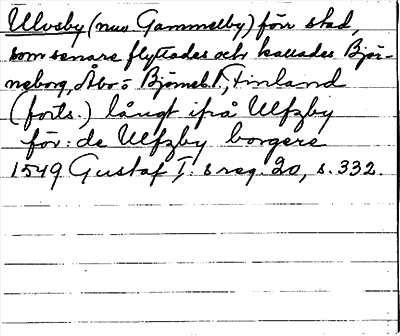 Ulvsby (nuv Gammelby) förr stad,
som senare flyttades och kallades Bjö-
neborg, Åbo o Björneb. l., Finland
(forts.) långt ifrå Ulfzby
för: de Ulfzby borgere
1549 Gustaf I:s reg. 20, s. 332.